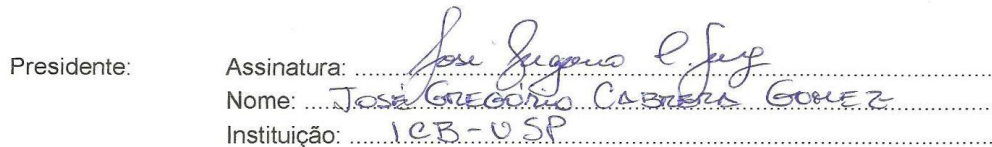 Presidente: Assinatura: José Gregório C. Gomez
Nome: JOSÉ GREGÓRIO CABRERA GOMEZ
Instituição: ICB-USP